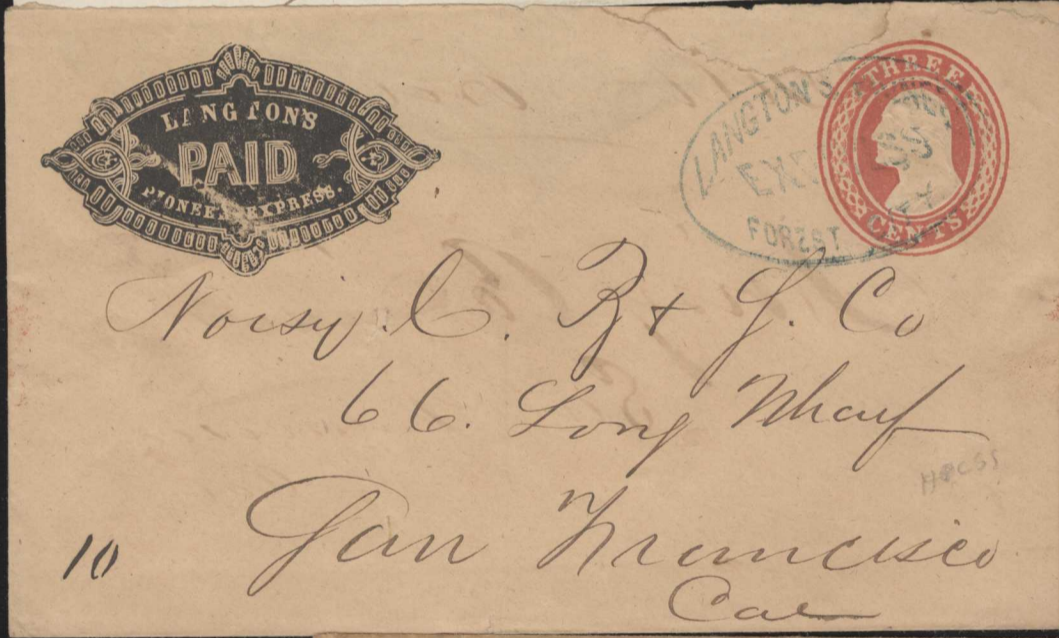 LANGTON'S
PAID
PIONEER EXPRESS.
LANGTON'S
EX
FOREST
THREE
CENTS
C. & J. Co
66. Long Wharf
San Francisco
Cal
10